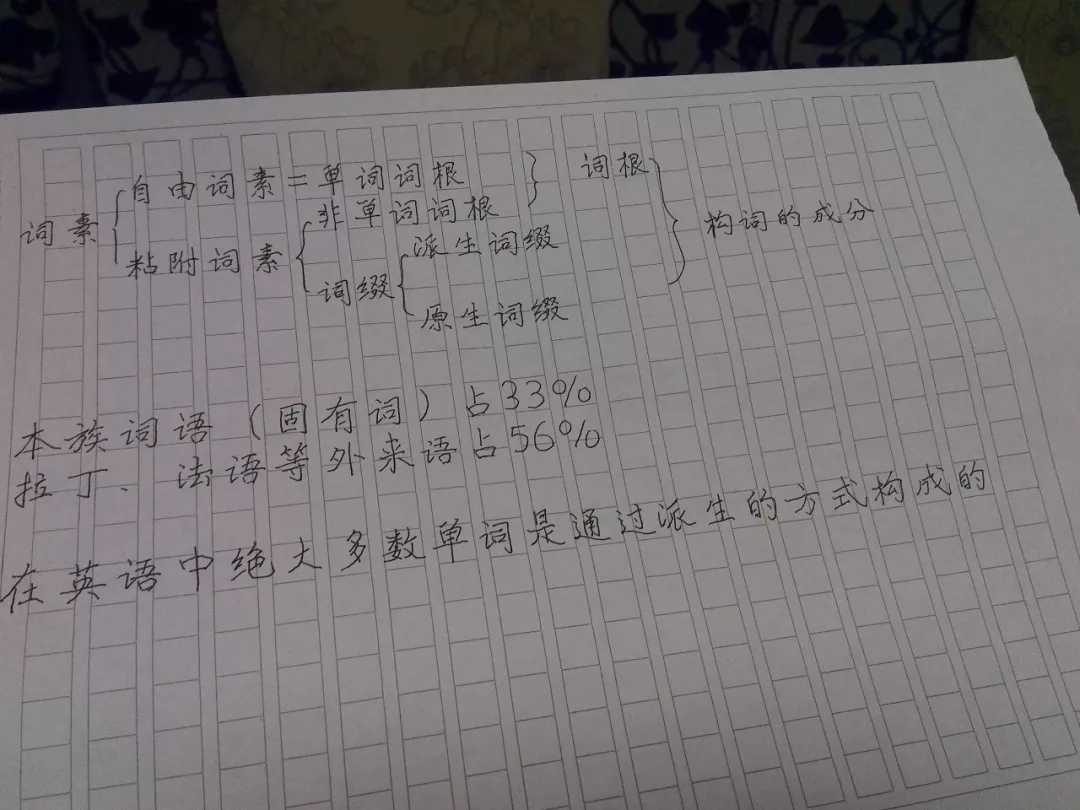 词素 { 自由词素=单词词根 } 词根 } 构词的成分
粘附词素 { 非单词词根
词缀 { 派生词缀
原生词缀
本族词语（固有词）占33%
拉丁、法语等外来语占56%
在英语中绝大多数单词是通过派生的方式构成的